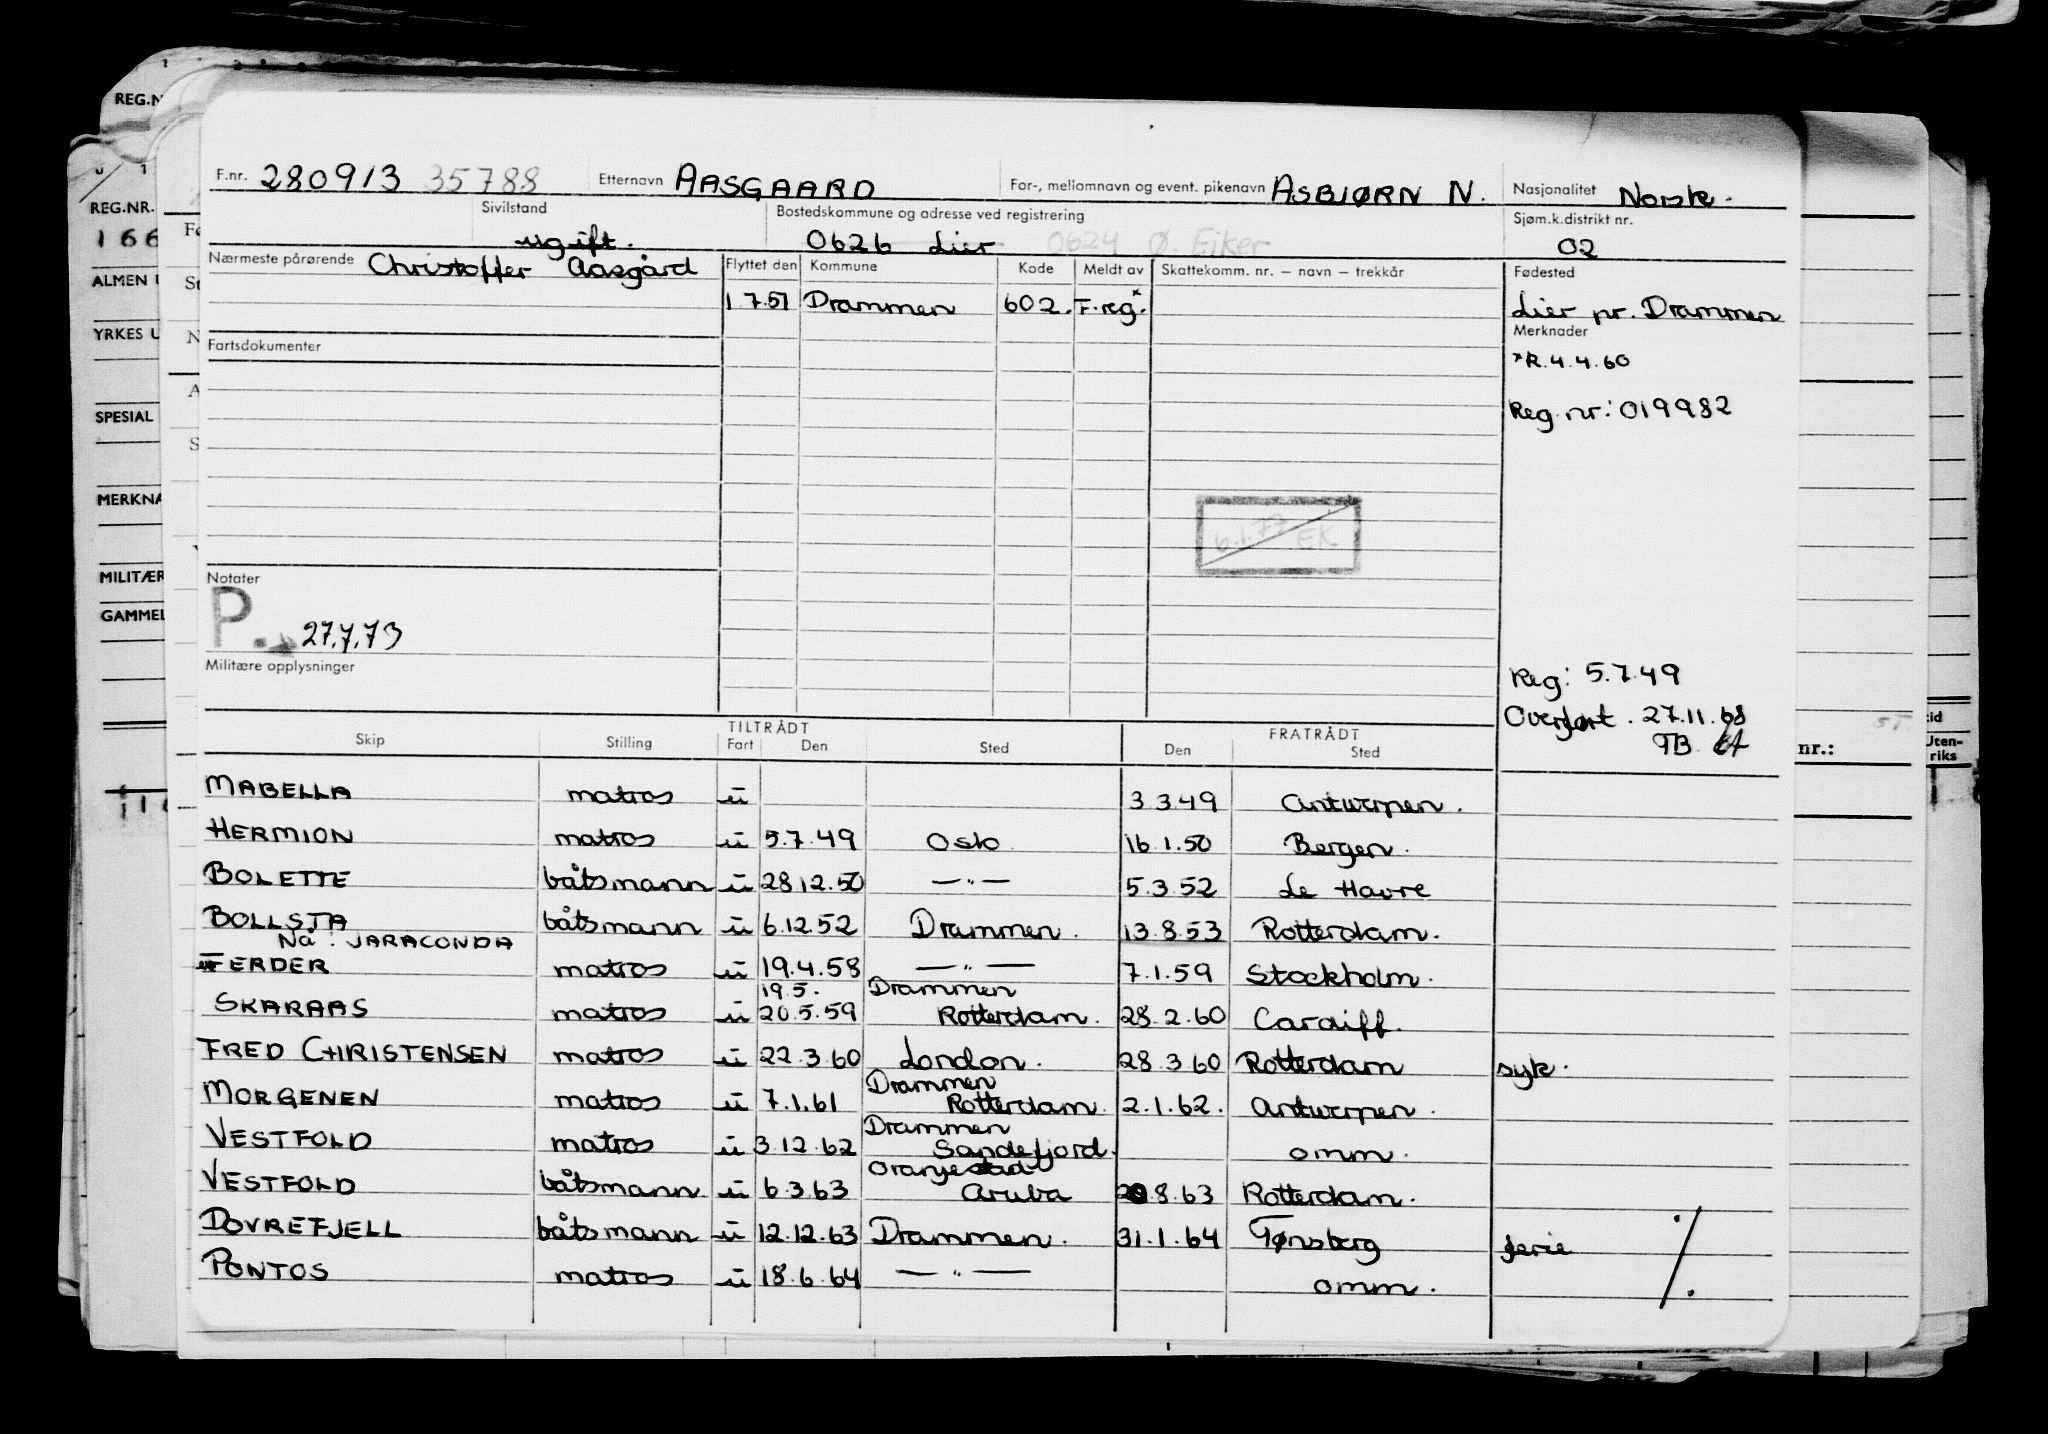 REG.N
REG.NR.
166
ALMEN U
YRKES U
SPESIAL
MERKNA
MILITÆR
GAMMEL
F.nr. 280913 35788 Etternavn AASGAARD For-, mellomnavn og event. pikenavn ASBJØRN N. Nasjonalitet Norsk.
Sivilstand Bostedskommune og adresse ved registrering Sjøm.k.distrikt nr.
ugift. 0626 Lier 0624 Ø. Eiker 02
Nærmeste pårørende Christoffer Aasgård Flyttet den Kommune Kode Meldt av Skattekomm. nr. – navn – trekkår Fødested
1.7.51 Drammen 602. F.reg.* Lier pr. Drammen
Merknader
Fartsdokumenter *R.4.4.60
Reg.nr: 019982
6.1.77 EK
Notater
P. 27.7.73
Militære opplysninger
Reg: 5.7.49
Overført. 27.11.68
TB
TILTRÅDT FRATRÅDT
Skip Stilling Fart Den Sted Den Sted
nr.:
tid
Uten-
riks
MABELLA matros u 3.3.49 Antwerpen.
HERMION matros u 5.7.49 Oslo 16.1.50 Bergen.
BOLETTE båtsmann u 28.12.50 —"— 5.3.52 Le Havre
BOLLSTA båtsmann u 6.12.52 Drammen. 13.8.53 Rotterdam.
Nå: JARACONDA
FERDER matros u 19.4.58 —"— 7.1.59 Stockholm.
19.5. Drammen
SKARAAS matros u 20.5.59 Rotterdam. 28.2.60 Cardiff.
FRED CHRISTENSEN matros u 22.3.60 London. 28.3.60 Rotterdam syk.
Drammen
MORGENEN matros u 7.1.61 Rotterdam. 2.1.62. Antwerpen.
Drammen
VESTFOLD matros u 3.12.62 Sandefjord. omm.
Oranjestad
VESTFOLD båtsmann u 6.3.63 Aruba 20.8.63 Rotterdam.
DOVREFJELL båtsmann u 12.12.63 Drammen. 31.1.64 Tønsberg ferie
PONTOS matros u 18.6.64 —"— omm.